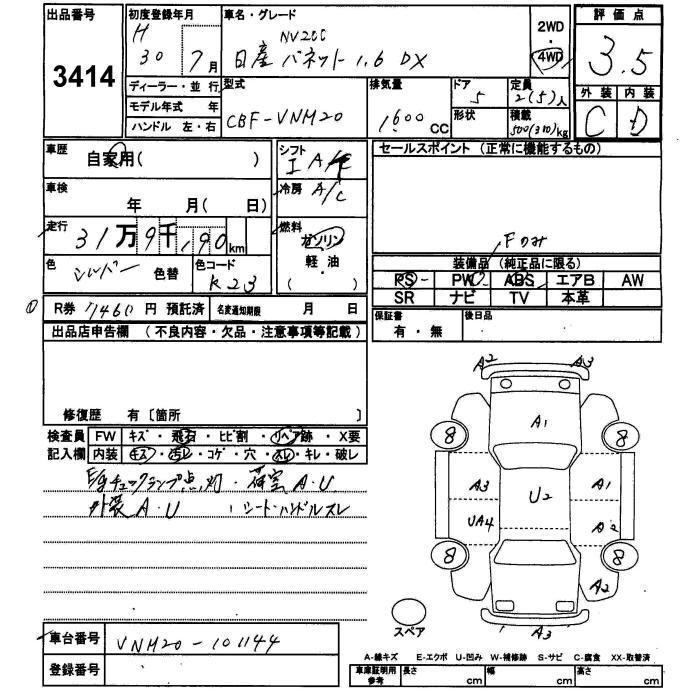 出品番号
3414
初度登録年月
H
30 7月
車名・グレード
NV200
日産 バネット 1.6 DX
2WD
・
4WD
評価点
3.5
外装 内装
C D
ディーラー・並行
モデル年式 年
ハンドル 左・右
型式
CBF-VNM20
排気量
1600CC
ドア
5
形状
定員
2(5)人
積載
kg
車歴
自家用( )
車検
年 月( 日)
走行
31万9千,190km
色
シルバー 色替
色コード
K23
シフト
I A/T
冷房
A/C
燃料
ガソリン
軽・油
( )
セールスポイント (正常に機能するもの)
Fのみ
装備品 (純正品に限る)
PS PW ABS エアB AW
SR ナビ TV 本革
保証書
有・無
後日品
R券 11460円 預託済 名変通知期限 月 日
出品店申告欄 (不良内容・欠品・注意事項等記載)
修復歴 有〔箇所
検査員
記入欄
FW キズ・飛石・ヒビ割・リペア跡・X要
内装 キズ・汚レ・コゲ・穴・スレ・キレ・破レ
E/gチェックランプ点灯・荷室A・U
外装A・U シート・ハンドルスレ
A2 A3
A1
8 8
A3 U2 A1
UA4 A2
8 8
A2
A3
スペア
車台番号
VNM20-101144
登録番号
A-線キズ E-エクボ U-凹み W-補修跡 S-サビ C-腐食 XX-取替済
車庫証明用
参考
長さ cm
幅 cm
高さ cm